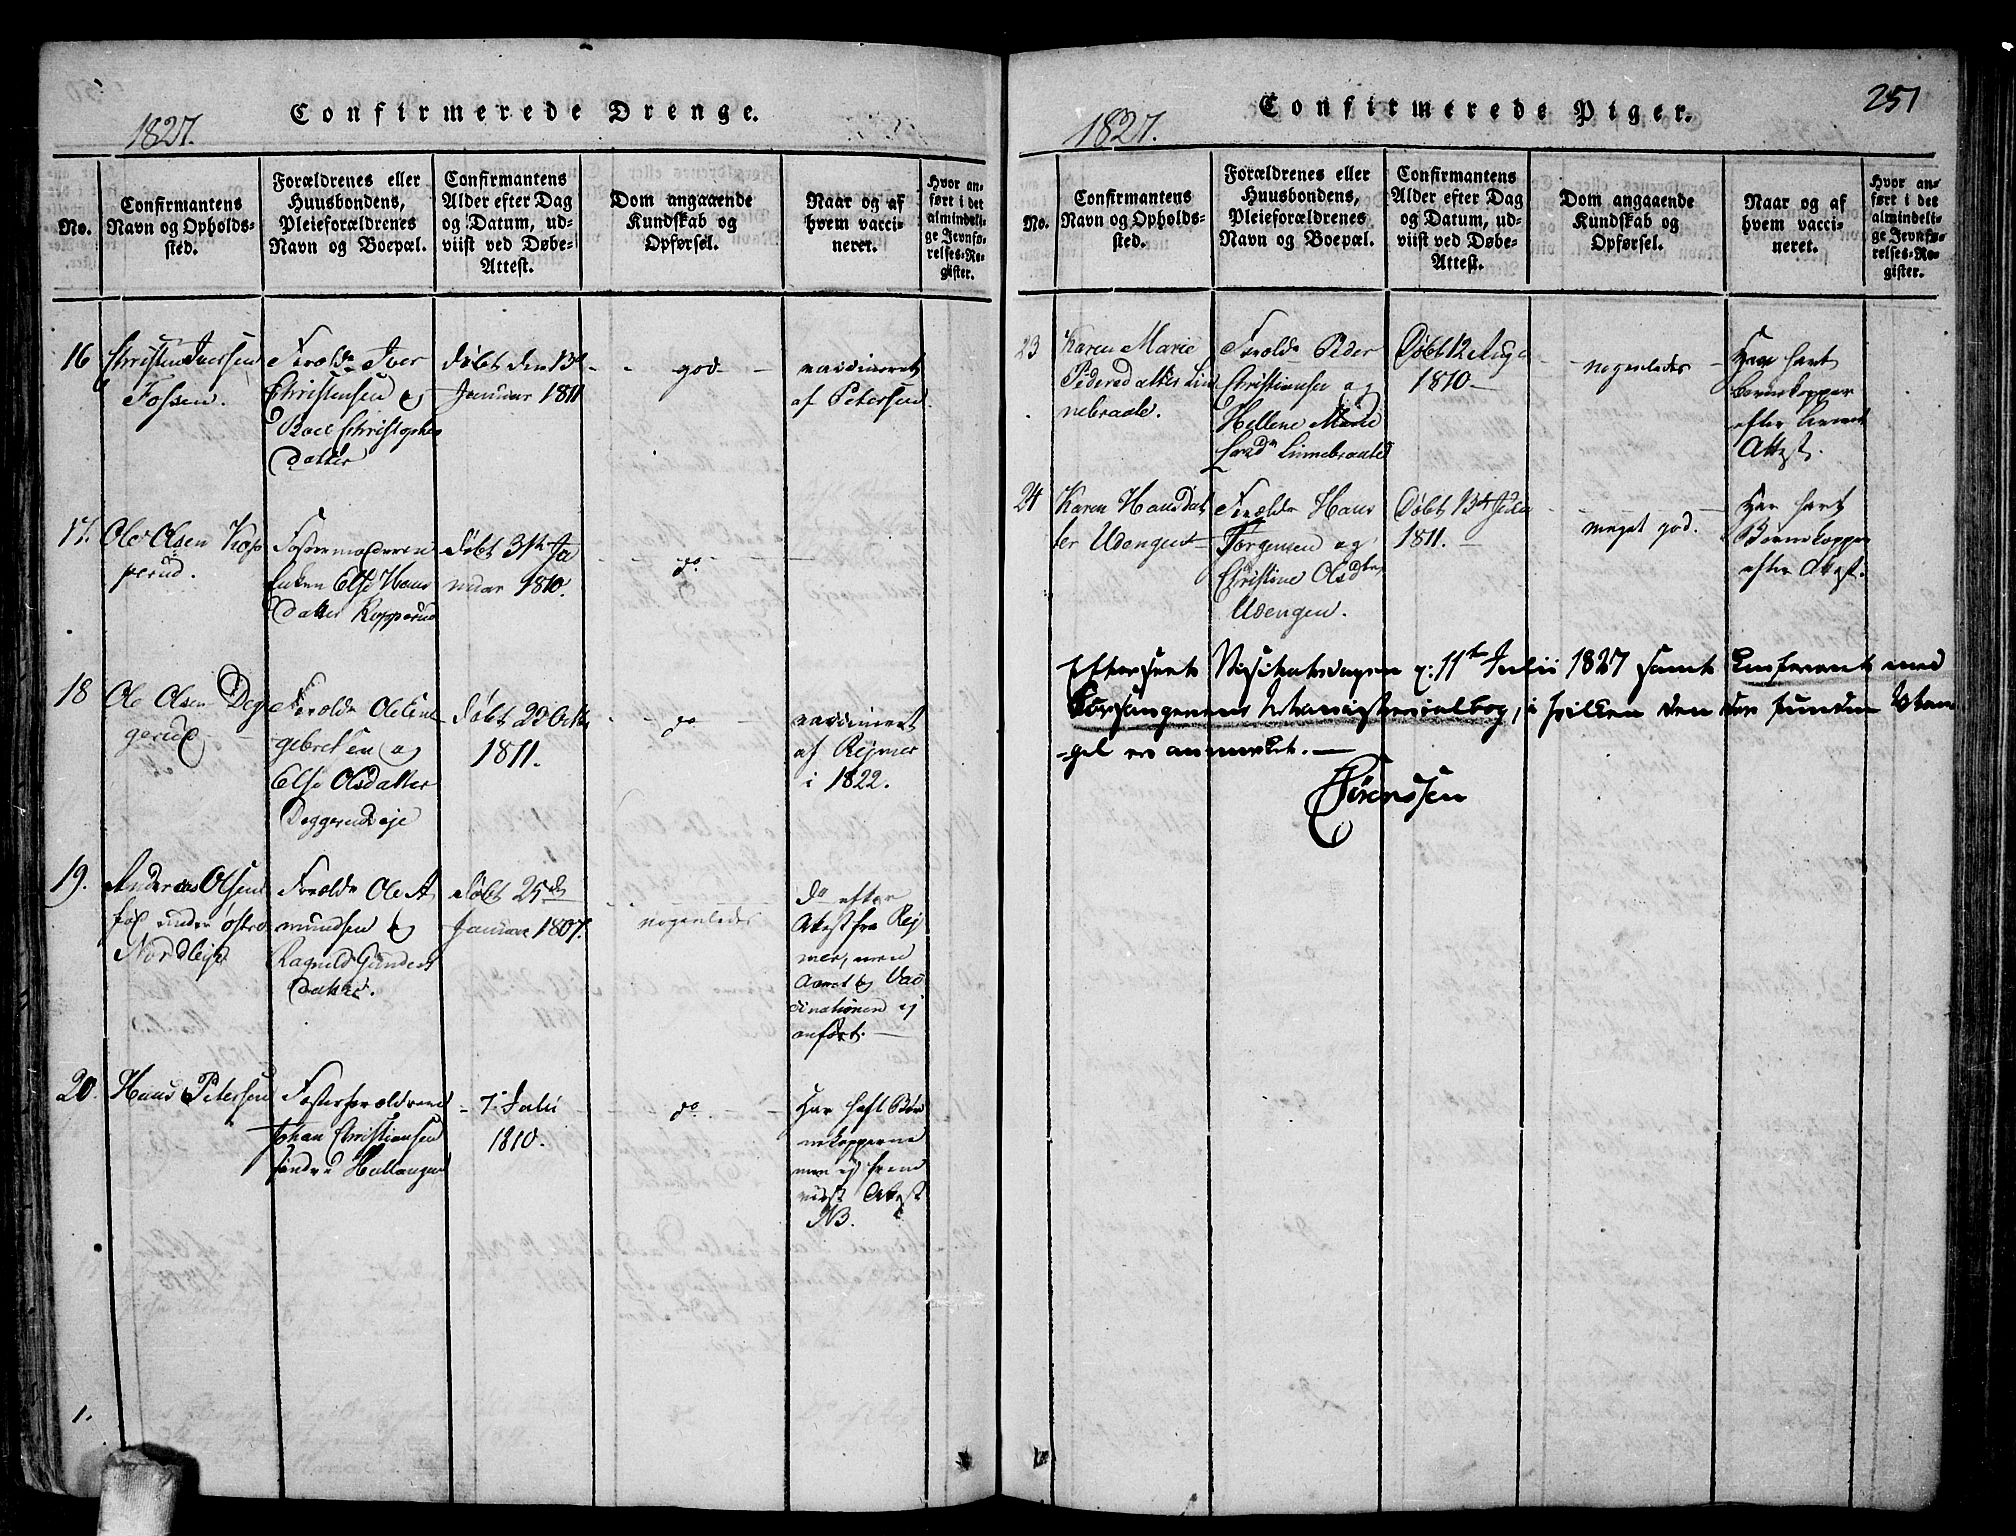 Confirmerede Drenge.
1827.
No.
Confirmantens
Navn og Opholds-
sted.
Forældrenes eller
Huusbondens,
Pleieforældrenes
Navn og Boepæl.
Confirmantens
Alder efter Dag
og Datum, ud-
viist ved Døbe-
Attest.
Dom angaaende
Kundskab og
Opførsel.
Naar og af
hvem vacci-
neret.
Hvor an-
ført i det
almindeli-
ge Jevnfø-
relses-Re-
gister.
16
Christen Iversen
Fossen.
Forældre Iver
Christensen og
Christophers
datter
døbt den 13de
Januar 1811
god
vaccineret
af Petersen.
17.
Ole Olsen Kop
perud.
Else Hans
datter Kopperud
døbt 31te Ja
nuar 1810.
do
18
Ole Olsen Deg
gerud
Forælde Ole Ene
gebretsen og
Else Olsdatter
Deggerudeje
døbt 20 Octbr
1811.
do
vaccineret
af Rejmer
i 1822.
19.
Anders Olsen
under østre
Nordlej
Forælde Ole A
mundsen og
Ragnild Gunders
datter.
døbt 25de
Januar 1807.
nogenledes
do efter
Attest fra Rej
mer, men
Aaret og Vac
cinationen ej
anført.
20.
Hans Petersen
Fosterforældrene
Johan Christiansen
søndre Hallangen
7. Julii
1810.
do
Har haft Bør
nekopperne
men ej frem
viist Attest
NB.
1.
Confirmerede Piger.
251
1827.
No.
Confirmantens
Navn og Opholds-
sted.
Forældrenes eller
Huusbondens,
Pleieforældrenes
Navn og Boepæl.
Confirmantens
Alder efter Dag
og Datum, ud-
viist ved Døbe-
Attest.
Dom angaaende
Kundskab og
Opførsel.
Naar og af
hvem vacci-
neret.
Hvor an-
ført i det
almindeli-
ge Jevnfø-
relses-Re-
gister.
23
Karen Marie
Pedersdatter Lin
nebraate.
Forælde Peder
Christiansen og
Hellene Marie
Linnebraate
Døbt 12 Aug
1810
nogenledes
Har havt
Børnekopper
efter
Attest.
24
Karen Hansdat
ter Udengen
Forælde Hans
Jørgensen og
Christine Olsdter
Udengen.
Døbt 13de
1811.
meget god.
Har havt
Børnekopper
efter Attest.
Efterseet Visitatsdagen d: 11te Julii 1827 samt Confereret med
Ministerialbog, i hvilken den der funden Man
gel er anmærket.
Sørenssen